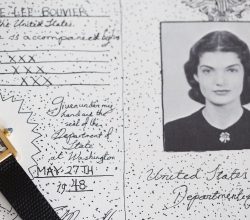 E LEE BOUVIER
the United States.
is accompanied by
XXX
XXX
Given under my
hand and the
seal of the
Department of
State
at Washington
MAY-27TH
1948
United States
Department